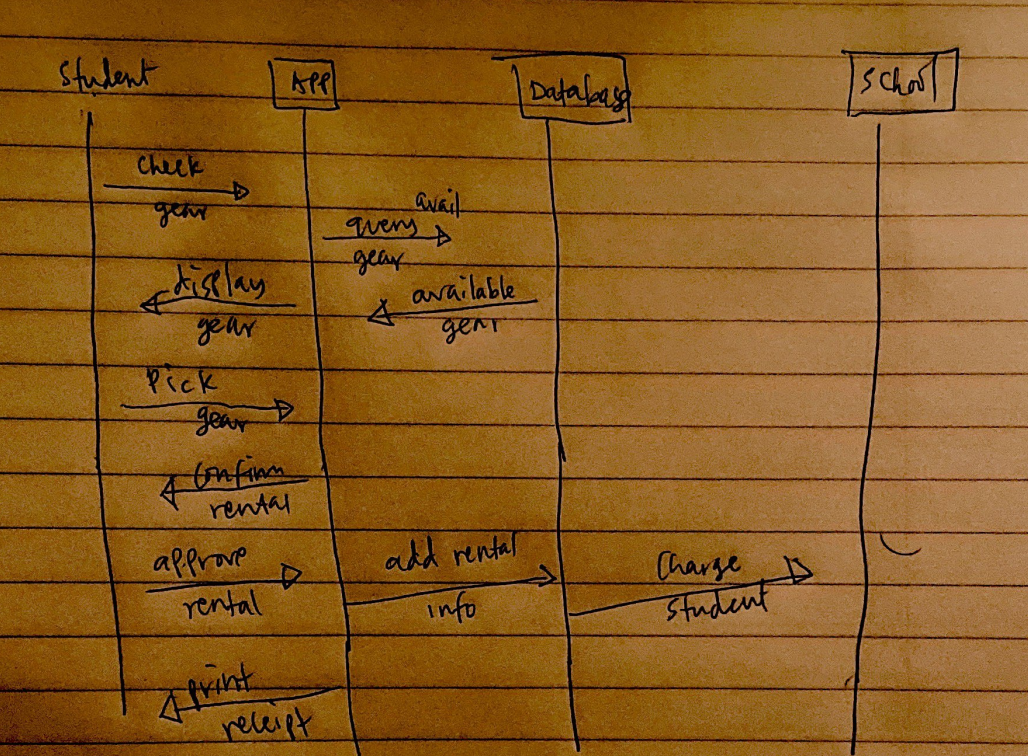 Student
APP
Database
SChool
Check
gear
avail
query
gear
display
gear
available
gear
Pick
gear
Confirm
rental
approve
rental
add rental
info
Charge
Student
print
receipt